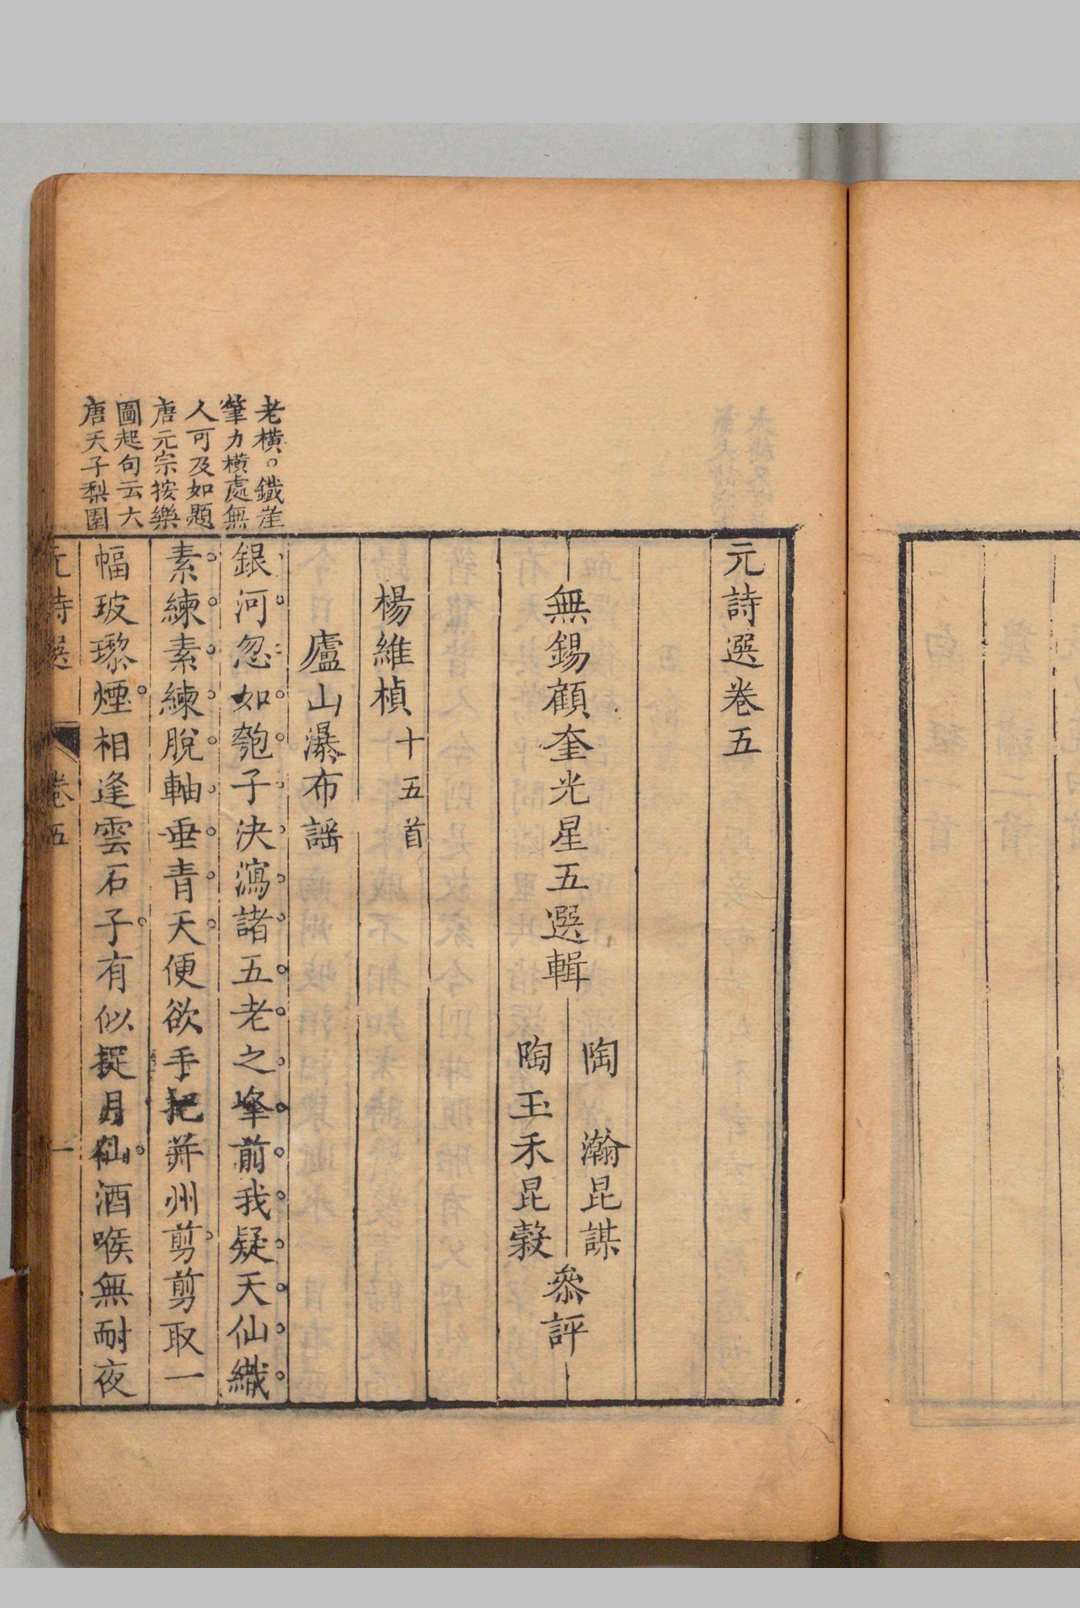 元詩選卷五
無錫顧奎光星五選輯
陶瀚昆謀
陶玉禾昆穀
叅評
楊維楨十五首
廬山瀑布謡
銀河忽如瓠子決瀉諸五老之峯前我疑天仙織
素練素練脫軸垂青天便欲手把并州剪剪取一
幅玻瓈煙相逢雲石子有似捉月仙酒喉無耐夜
老橫。鐵崖
筆力橫處無
人可及如題
唐元宗按樂
圖起句云大
唐天子梨園
元詩選
卷五
一